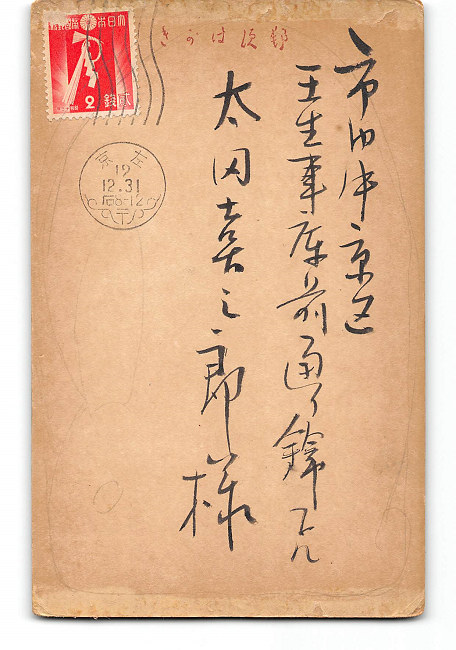 大日本帝國郵便
2
銭
貳
郵便はがき
左京
12
12.31
后8-12
市内中京区
壬生車庫前通り錦
太田喜之郎様